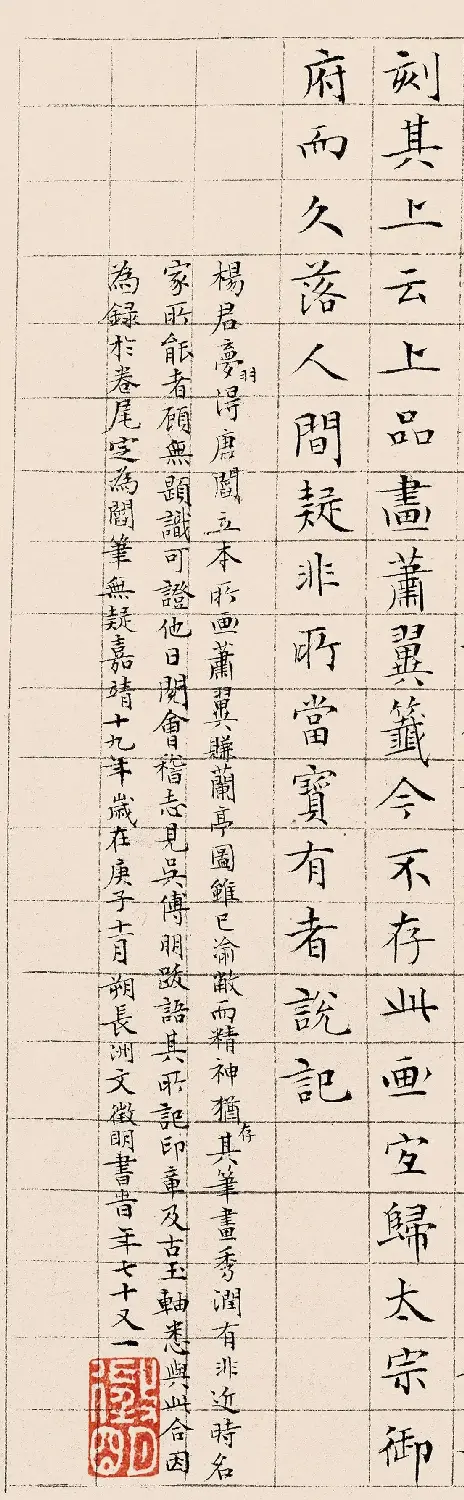 刻其上云上品畫蕭翼籤今不存此画宜歸太宗御
府而久落人間疑非所當寶有者說記
楊君夢羽得唐閻立本所画蕭翼賺蘭亭圖雖已渝敝而精神猶存其筆畫秀潤有非近時名
家所能者顧無題識可證他日閱會稽志見吳傅朋跋語其所記印章及古玉軸悉與此合因
為錄於卷尾定為閻筆無疑嘉靖十九年歲在庚子十一月朔長洲文徵明書昔年七十又一
徵明